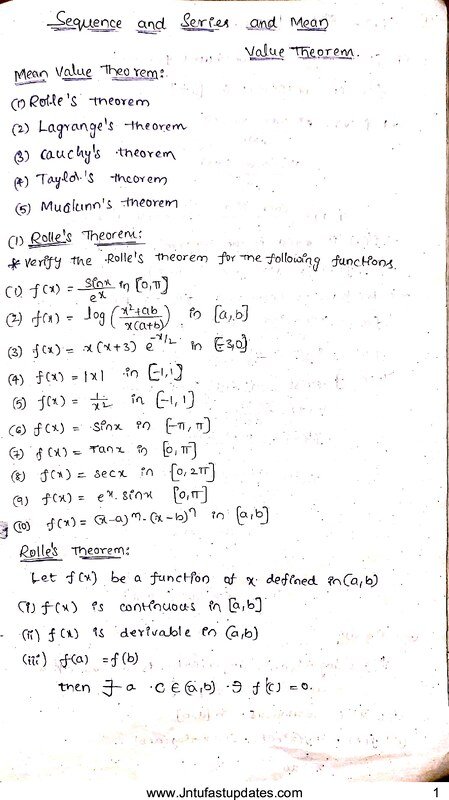 Sequence and Series and Mean
Value Theorem.
Mean Value Theorem:
(1) Rolle's theorem
(2) Lagrange's theorem
(3) Cauchy's theorem
(4) Taylor's theorem
(5) Muclaurin's theorem
(1) Rolle's Theorem:
* Verify the Rolle's theorem for the following functions.
(1) f(x) = sinx/e^x in [0,π]
(2) f(x) = log((x²+ab)/(x(a+b))) in [a,b]
(3) f(x) = x(x+3) e^(-x/2) in [-3,0]
(4) f(x) = |x| in [-1,1]
(5) f(x) = 1/x² in [-1,1]
(6) f(x) = sinx in [-π,π]
(7) f(x) = Tanx in [0,π]
(8) f(x) = secx in [0,2π]
(9) f(x) = e^x. sinx [0,π]
(10) f(x) = (x-a)^m. (x-b)^n in [a,b]
Rolle's Theorem:
Let f(x) be a function of x defined in (a,b)
(i) f(x) is continuous in [a,b]
(ii) f(x) is derivable in (a,b)
(iii) f(a) = f(b)
then ∃ a C ∈ (a,b) ∋ f'(c) = 0.
www.Jntufastupdates.com 1